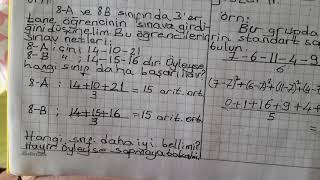 8-A ve 8B sınıfında 3'er
tane öğrencinin sınava girdi-
ğini düşünelim. Bu öğrencilerin
sınav netleri;
8-A : için; 14-10-21
8-B " 14-15-16 dır. Öyleyse
hangi sınıf daha başarılıdır?
8-A ; 14+10+21 = 15 arit. ort.
3
8-B ; 14+15+16 = 15 arit. ort.
3
Hangi sınıf daha iyi belli mi?
Hayır öyleyse sapmaya bakalım
örn:
Bu grupda
standart sa
bulun.
7-6-11-4-9
6
(7-7)²+(6-7)²+(11-7)²+(4-7)²
0+1+16+9+4+
6